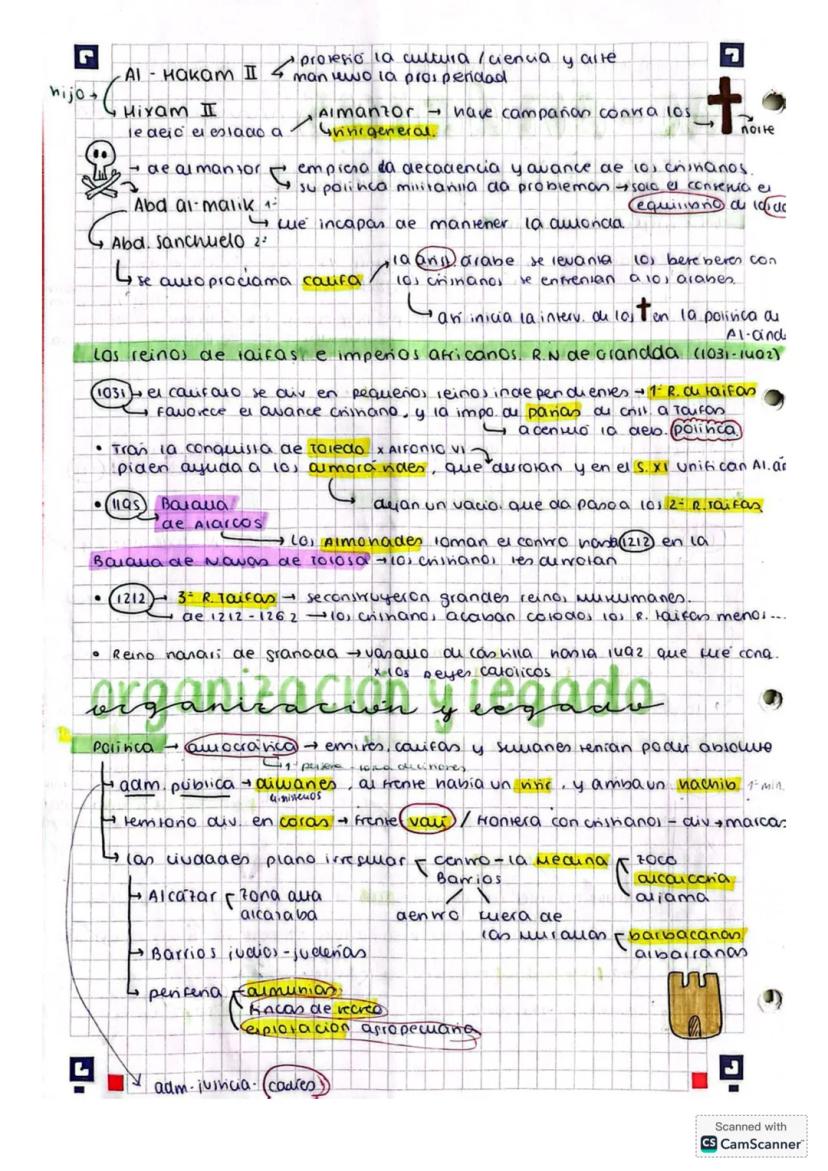 protegió la cultura / ciencia y arte
Al-Hakam II
mantuvo la prosperidad
hijo
Hixam II
Almanzor → hace campañas contra los
norte
le dejó el estado a
visir general.
→ de almansor
empieza la decadencia y avance de los cristianos.
su política militarista da problemas → solo el conseguía el
equilibrio de
Abd al-malik 1º
fue incapas de mantener la autorida
Abd. Sanchuelo 2º
la aris. árabe se levanta los bereberes con
se autoproclama califa
los cristianos se enfrentan a los árabes.
así inicia la interv. de los † en la política de
Al-ánd
Los reinos de taifas e imperios africanos. R.N de Grandda (1031-1492)
1031 → el califato se div en pequeños reinos independientes → 1º R. de taifas
→ Favorece el avance cristiano, y la impo. de parias de crist. a Taifas
acentuó la deb. política.
• Tras la conquista de Toledo x Alfonso VI
piden ayuda a los almorávides, que derrotan y en el S. XI unifican Al. án
dejan un vacío. que da paso a los 2º R. Taifas
• 1195 Batalla
de Alarcos
los Almohades toman el contro hasta 1212 en la
Batalla de Navas de Tolosa → los cristianos les derrotan
• 1212 → 3º R. Taifas → se construyeron grandes reinos musulmanes.
→ de 1212-1262 → los cristianos acaban co todos los R. taifas menos...
• Reino nasarí de granada → vasallo de Castilla hasta 1492 que fué conq.
x los Reyes Católicos
organización y legado
organización y legado
Política → autocrática → emires, califas y sultanes tenían poder absoluto
adm. pública → diwanes, al frente había un visir, y arriba un hachib 1º min.
ministerios
territorio div. en coras → frente valí / frontera con cristianos - div → marcas
las ciudades plano irregular
centro - la Medina
zoco
Barrios
alcaicería
aljama
Alcázar
zona alta
alcazaba
dentro
fuera de
las murallas
barbacanas
albarranas
Barrios judíos - juderías
periferia
almunias
fincas de recreo
explotación agropecuaria
adm. justicia - (cadíes)
Scanned with
CS CamScanner